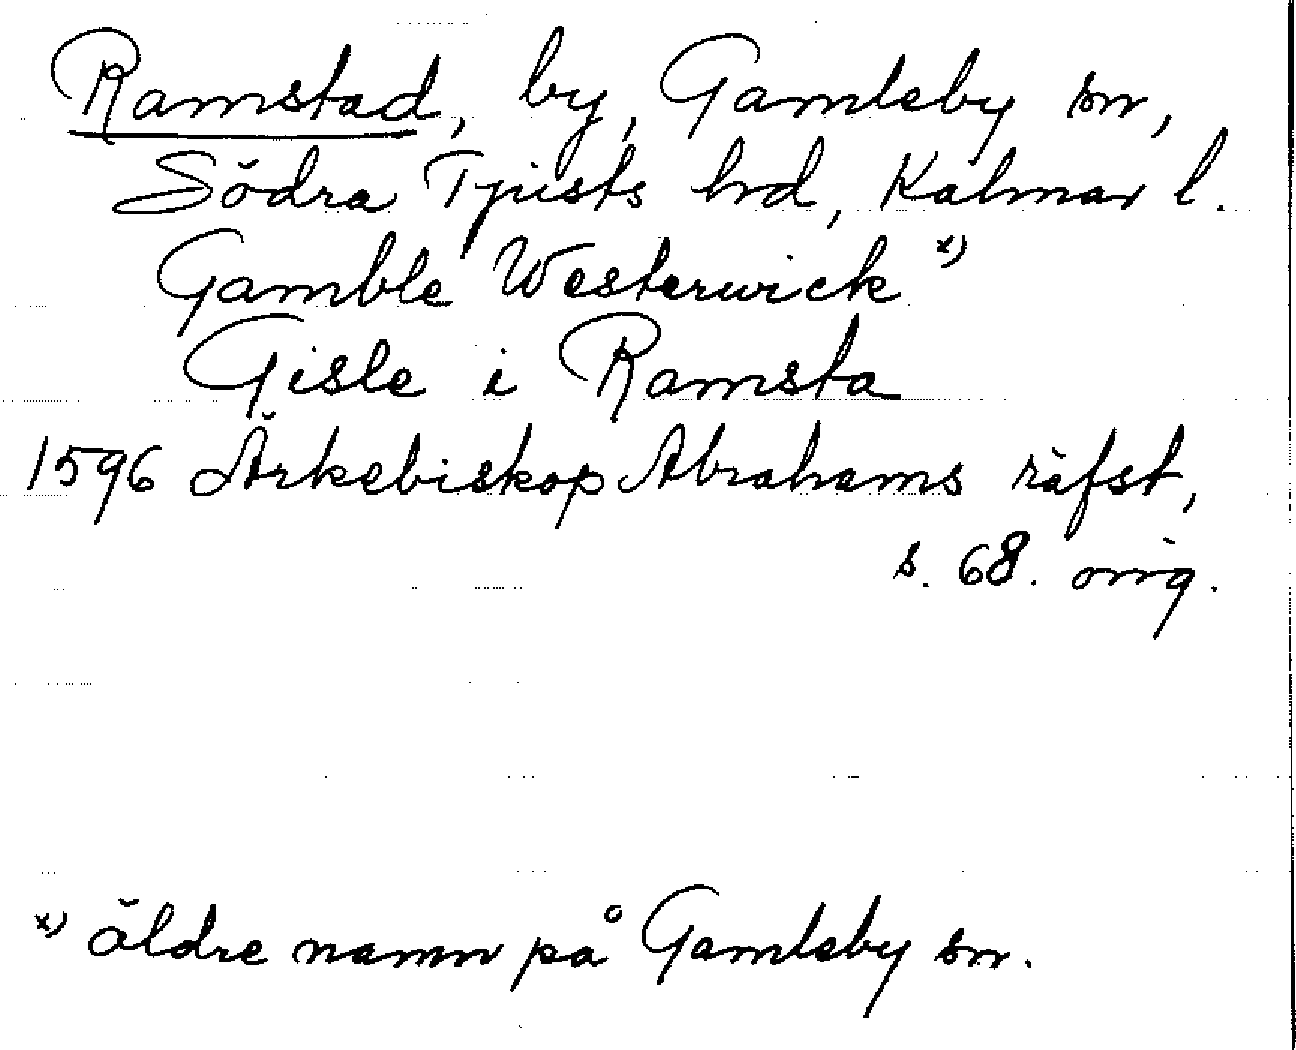 Ramstad, by, Gamleby sn,
Södra Tjusts hrd, Kalmar l.
Gamble Westerwick x)
Gisle i Ramsta
1596 Ärkebiskop Abrahams räfst,
s. 68. orig.
x) äldre namn på Gamleby sn.